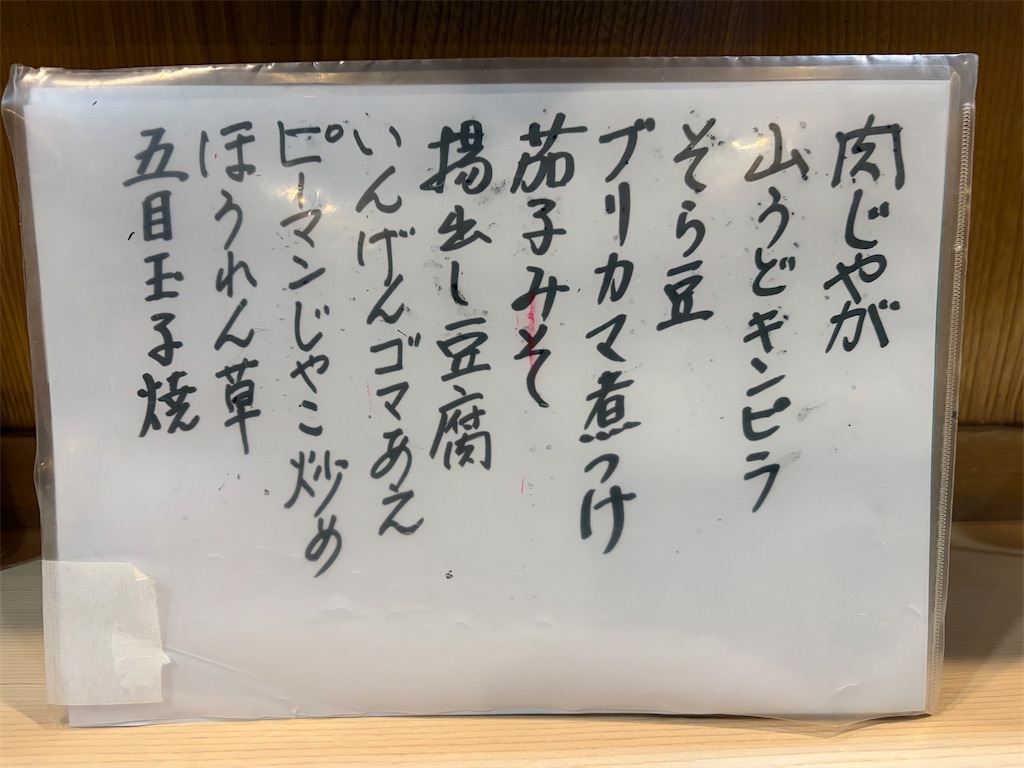 肉じゃが
山うどキンピラ
そら豆
ブリカマ煮つけ
茄子みそ
揚出し豆腐
いんげんゴマあえ
ピーマンじゃこ炒め
ほうれん草
五目玉子焼